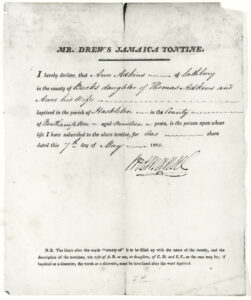 MR. DREW'S JAMAICA TONTINE.
I hereby declare, that Ann Adkins of Lathbury
in the county of Bucks daughter of Thomas Adkins and
Anne his Wife
baptized in the parish of in the County
of Northampton aged years, is the person upon whose
life I have subscribed to the above tontine, for One share
dated this 7th day of May 1802.
N.B. The blank after the words "county of" is to be filled up with the name of the county, and the
description of the nominee, viz. wife of A. B. or son, or daughter, of C. D. and E. F., as the case may be; if
baptized as a dissenter, the words as a dissenter, must be introduced after the word baptized.